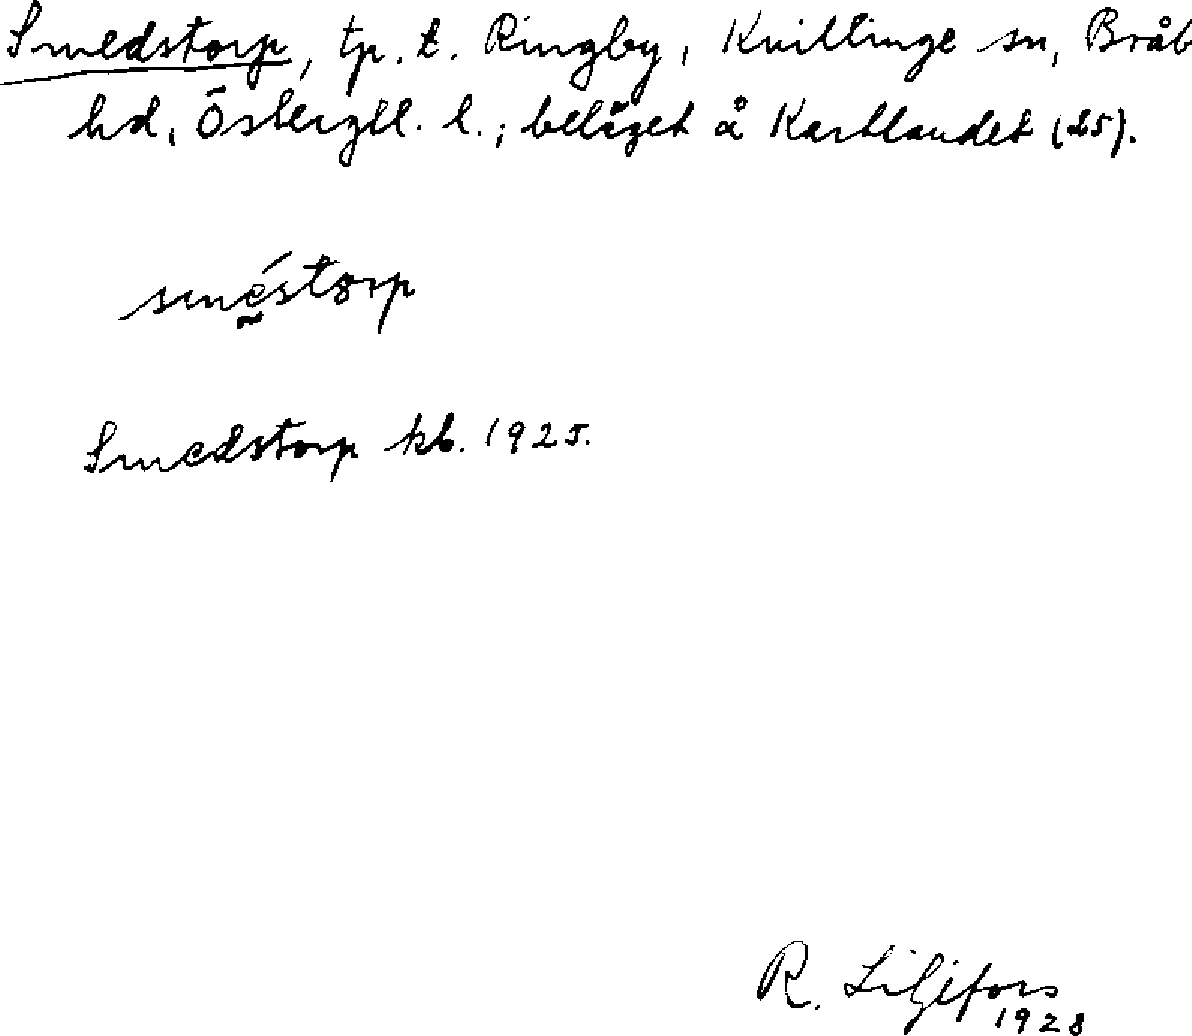 Smedstorp, tp. t. Ringby, Kvillinge sn, Bråb
hd, Östergtl. l.; beläget å Kartbladet (25).
sméstorp
Smedstorp kb. 1925.
R. Liljefors
1928